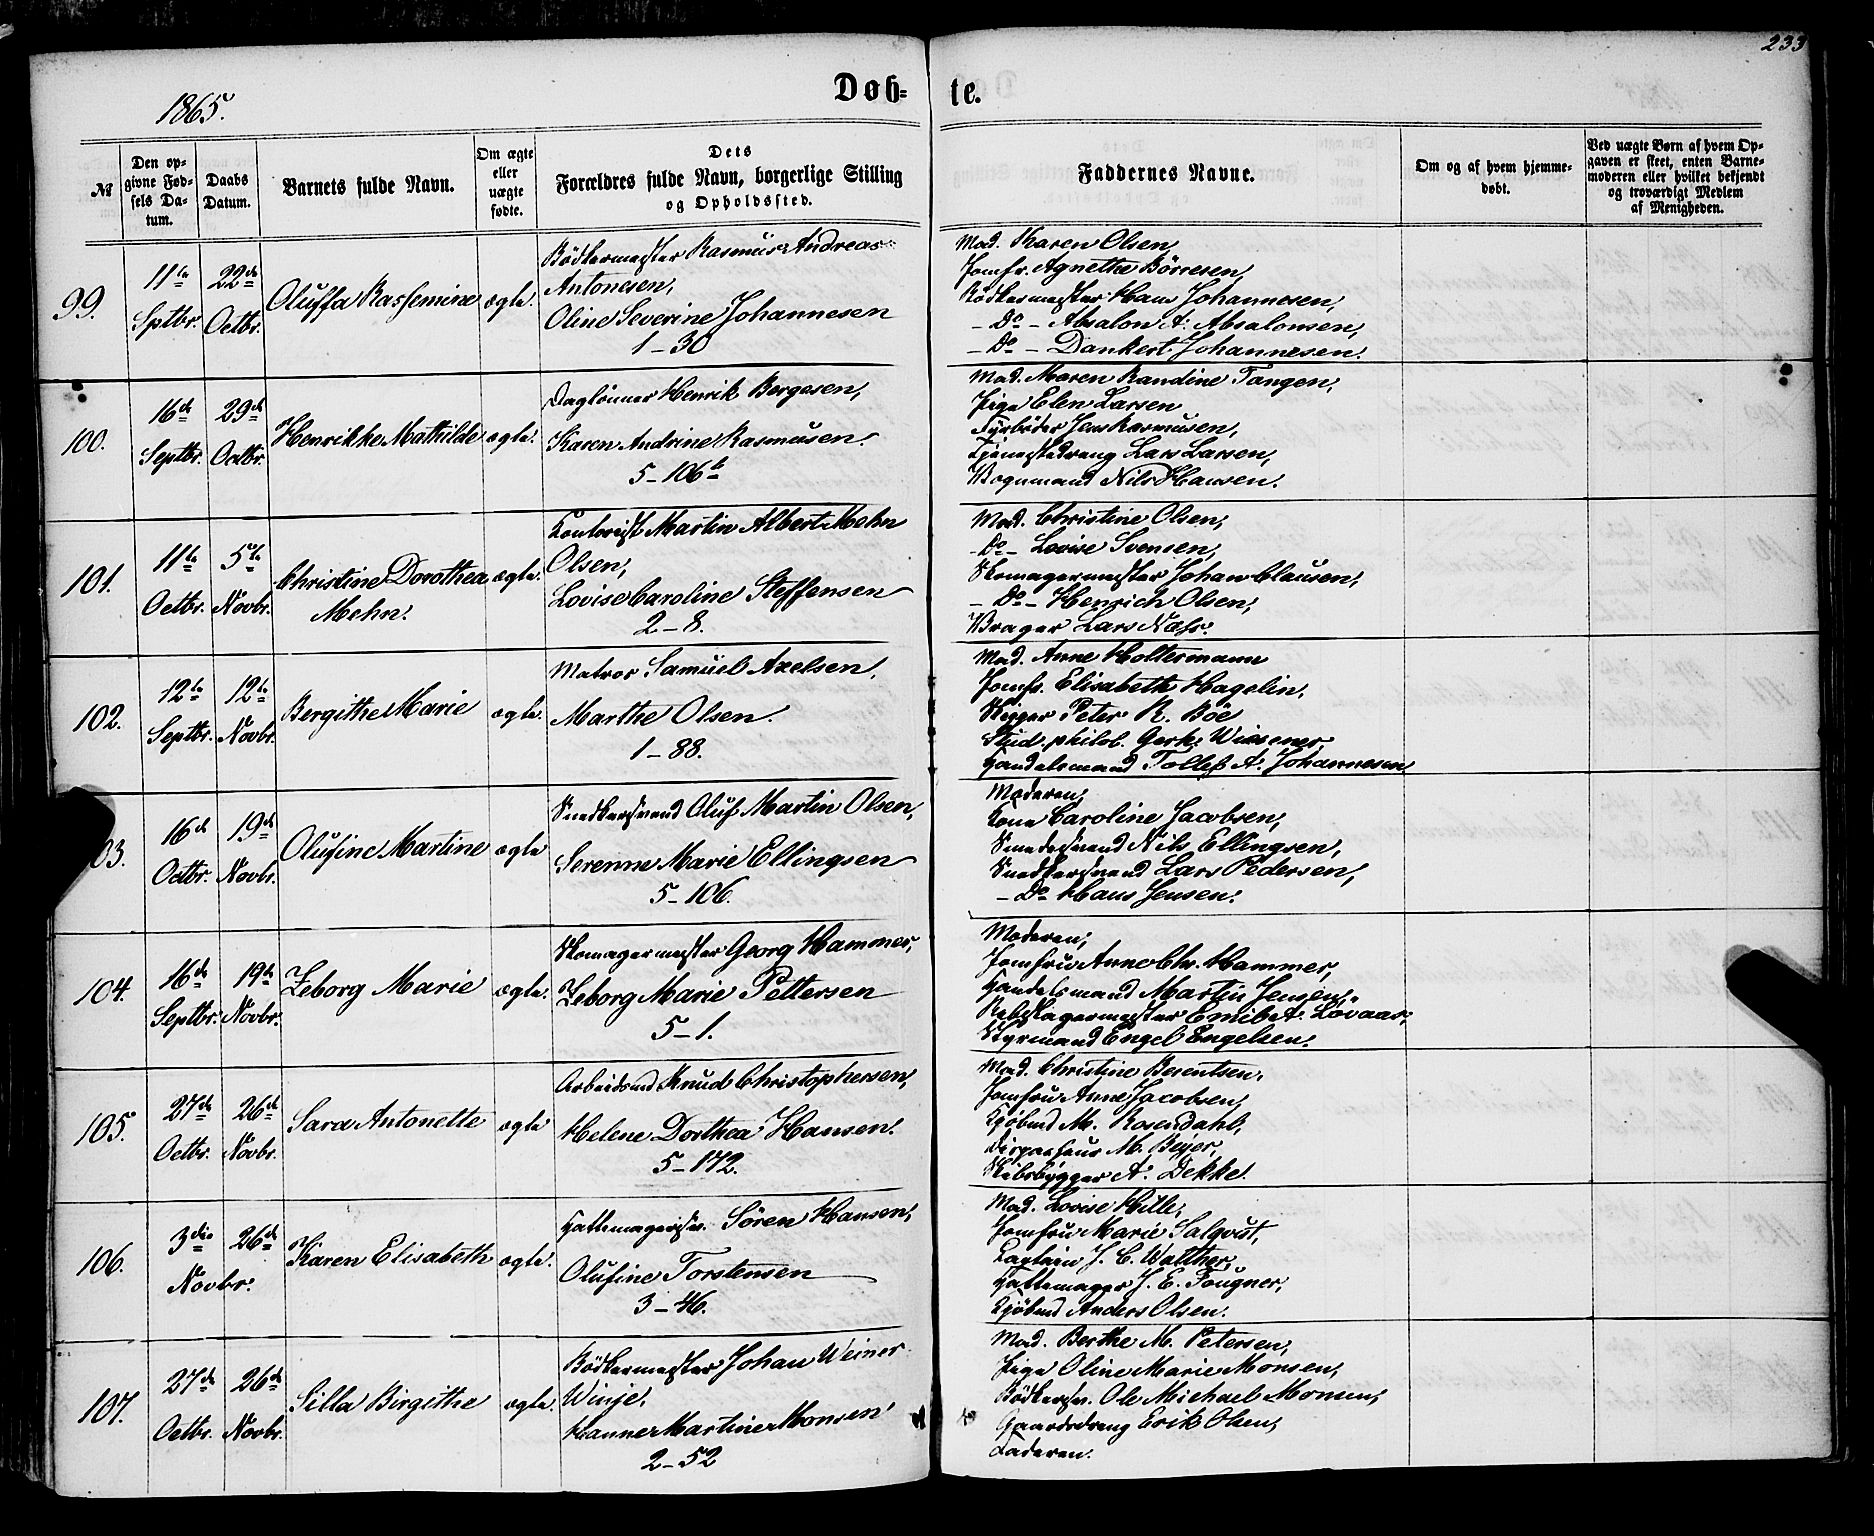 233
1865.
Døb-
te.
№
Den op-
givne Fød-
sels Da-
tum.
Daabs
Datum.
Barnets fulde Navn.
Om ægte
eller
uægte
fødte.
Dets
Forældres fulde Navn, borgerlige Stilling
og Opholdssted.
Faddernes Navne.
Om og af hvem hjemme-
døbt.
Ved uægte Børn af hvem Op-
gaven er skeet, enten Barne-
moderen eller hvilket bekjendt
og troværdigt Medlem
af Menigheden.
99.
11te
Sptbr.
22de
Octbr.
Oluffa Rassemine
ægte.
Bödkermester Rasmus Andreas
Antonesen,
Oline Severine Johannesen
1-30
Mad. Karen Olsen,
Jomfr. Agnethe Börresen,
Bödkermester Hans Johannesen,
- Do - Absalon A. Absalonsen,
- Do - Dankert Johannesen.
100.
16de
Septbr.
29de
Octbr.
Henrikke Mathilde
ægte.
Daglönner Henrik Bergesen,
Karen Andrine Rasmusen.
5-106b
Mad. Maren Randine Tangen,
Pige Elen Larsen
Fyrböder Jens Rasmusen,
Tjenestedreng Lars Larsen,
Vognmand Nils Hansen.
101.
11te
Octbr.
5te
Novbr.
Christine Dorothea
Mehn.
ægte.
Contorist Martin Albert Mehn
Olsen,
Lovise Caroline Steffensen
2-8.
Mad. Christine Olsen,
- Do - Lovise Svensen,
Skomagermester Johan Clausen,
- Do - Henrich Olsen,
Vrager Lars Næss.
102.
12te
Septbr.
12te
Novbr.
Bergithe Marie
ægte.
Matros Samuel Axelsen,
Marthe Olsen.
1-88.
Mad. Anne Holtermann
Jomfr. Elisabeth Hagelin,
Skipper Peter R. Böe
Stud. philol. Gerh. Wiesener
Handelsmand Tollef A. Johannesen
03.
16de
Octbr.
19de
Novbr.
Olufine Martine
ægte
Snedkersvend Oluf Martin Olsen,
Serenne Marie Ellingsen
5-106.
Moderen,
Kone Caroline Jacobsen,
Smedesvend Nils Ellingsen,
Snedkersvend Lars Pedersen,
- Do Hans Jensen.
104.
16de
Septbr.
19de
Novbr.
Zeborg Marie
ægte.
Skomagermester Georg Hammer,
Zeborg Marie Pettersen
5-1.
Moderen,
Jomfru Anne Chr. Hammer,
Handelsmand Martin Jensen,
Rebslagermester Emil A. Lövaas,
Styrmand Engel Engelsen.
105.
27de
Octbr.
26de
Novbr.
Sara Antonette
ægte
Arbeidsmd Knud Christophersen,
Helene Dorthea Hansen.
5-172.
Mad. Christine Berentsen,
Jomfru Anne Jacobsen,
Kjöbmd M. Rosendahl,
Dispacheur M. Beyer,
Skibsbygger A. Dekke.
106.
3die
Novbr.
26de
Karen Elisabeth
ægte.
Hattemagersv. Sören Hansen,
Olufine Torstensen
3-46.
Mad. Lovise Hille,
Jomfru Marie Salqvist,
Captain J. C. Walther,
Hattemager J. E. Fougner,
Kjöbmd Anders Olsen.
107.
27de
Octbr.
26de
Novbr.
Silla Birgithe
ægte.
Bödkermester Johan Weiner
Winje,
Hanne Martine Monsen
2-52
Mad. Berthe M. Petersen,
Pige Oline Marie Monsen,
Bödkersv. Ole Michael Monsen,
Gaardsdreng Erik Olsen,
Faderen.